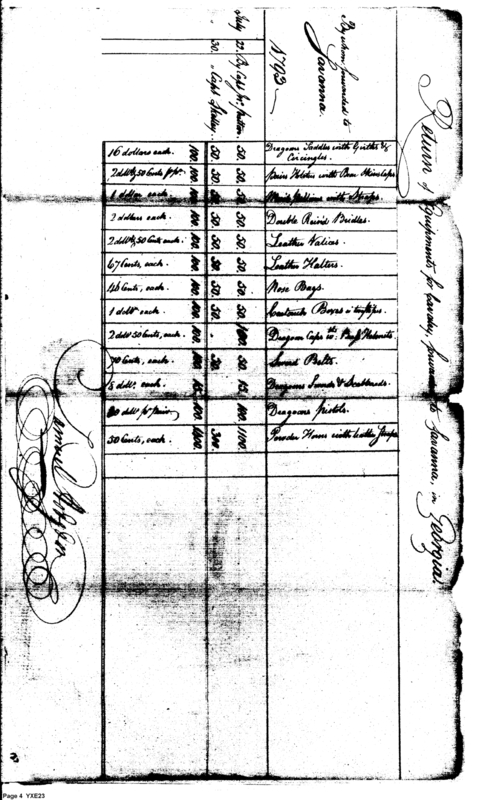 Return of Equipments for Cavalry, forwarded to Savanna, in Georgia.
By whom forwarded to
Savanna.
1793
July 22. By Capt.
" 30. " Capt.
Dragoon Saddles with Girths &
Circingles. 50. 50. 100. 16 dollars each.
pairs Holsters with Bear Skin 50. 50. 100.
with Straps. 50. 100. 1 dollar each.
Double Rein'd Bridles. 50. 50. 100. 2 dollars each.
Leather Valices. 50. 50. 100. 2 dolls 50 Cents each.
Leather Halters. 50. 50. 100. 67 Cents, each.
Nose Bags. 50. 50. 100. Cents, each.
Cartouch Boxes 50. 50. 100. 1 doll. each.
Dragoon Caps 100. 100. 2 doll 50 Cents, each.
Sword Belts. 50. 50. 100. 70 Cents, each.
Dragoons Swords & Scabbards. each.
Dragoons pistols. 100. 100.
Powder Horns with leather Straps 1100. 300. 1400. 50 Cents, each.
Samuel Hodgdon
Page 4 YXE23